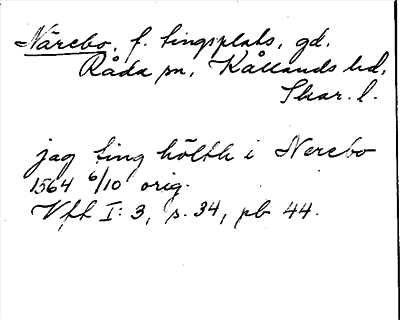 Närebo, f. tingsplats, gd.
Råda sn, Kållands hd,
Skar. l.
jag ting hölth i Nerebo
1564 6/10 orig.
Vft I: 3, s. 34, pb 44.